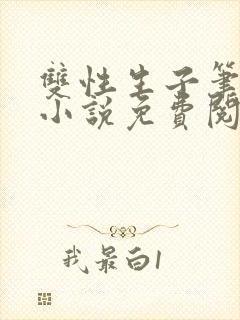 雙性生子筆
小說免費閱
我最白1